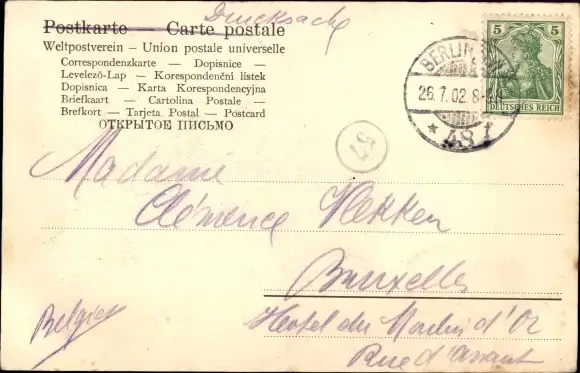 Drucksache
Postkarte — Carte postale
Weltpostverein - Union postale universelle
Correspondenzkarte — Dopisnice —
Levelező-Lap — Korespondenční listek
Dopisnica - Karta Korespondencyjna
Briefkaart - Cartolina Postale -
Brefkort - Tarjeta Postal - Postcard
ОТКРЫТОЕ ПИСЬМО
5 5
DEUTSCHES REICH
BERLIN
26.7.02.8-
* 48
57
Madame
Clémence Vlekken
Bruxelles
Belgien
Hotel du Moulin d'Or
Rue d'